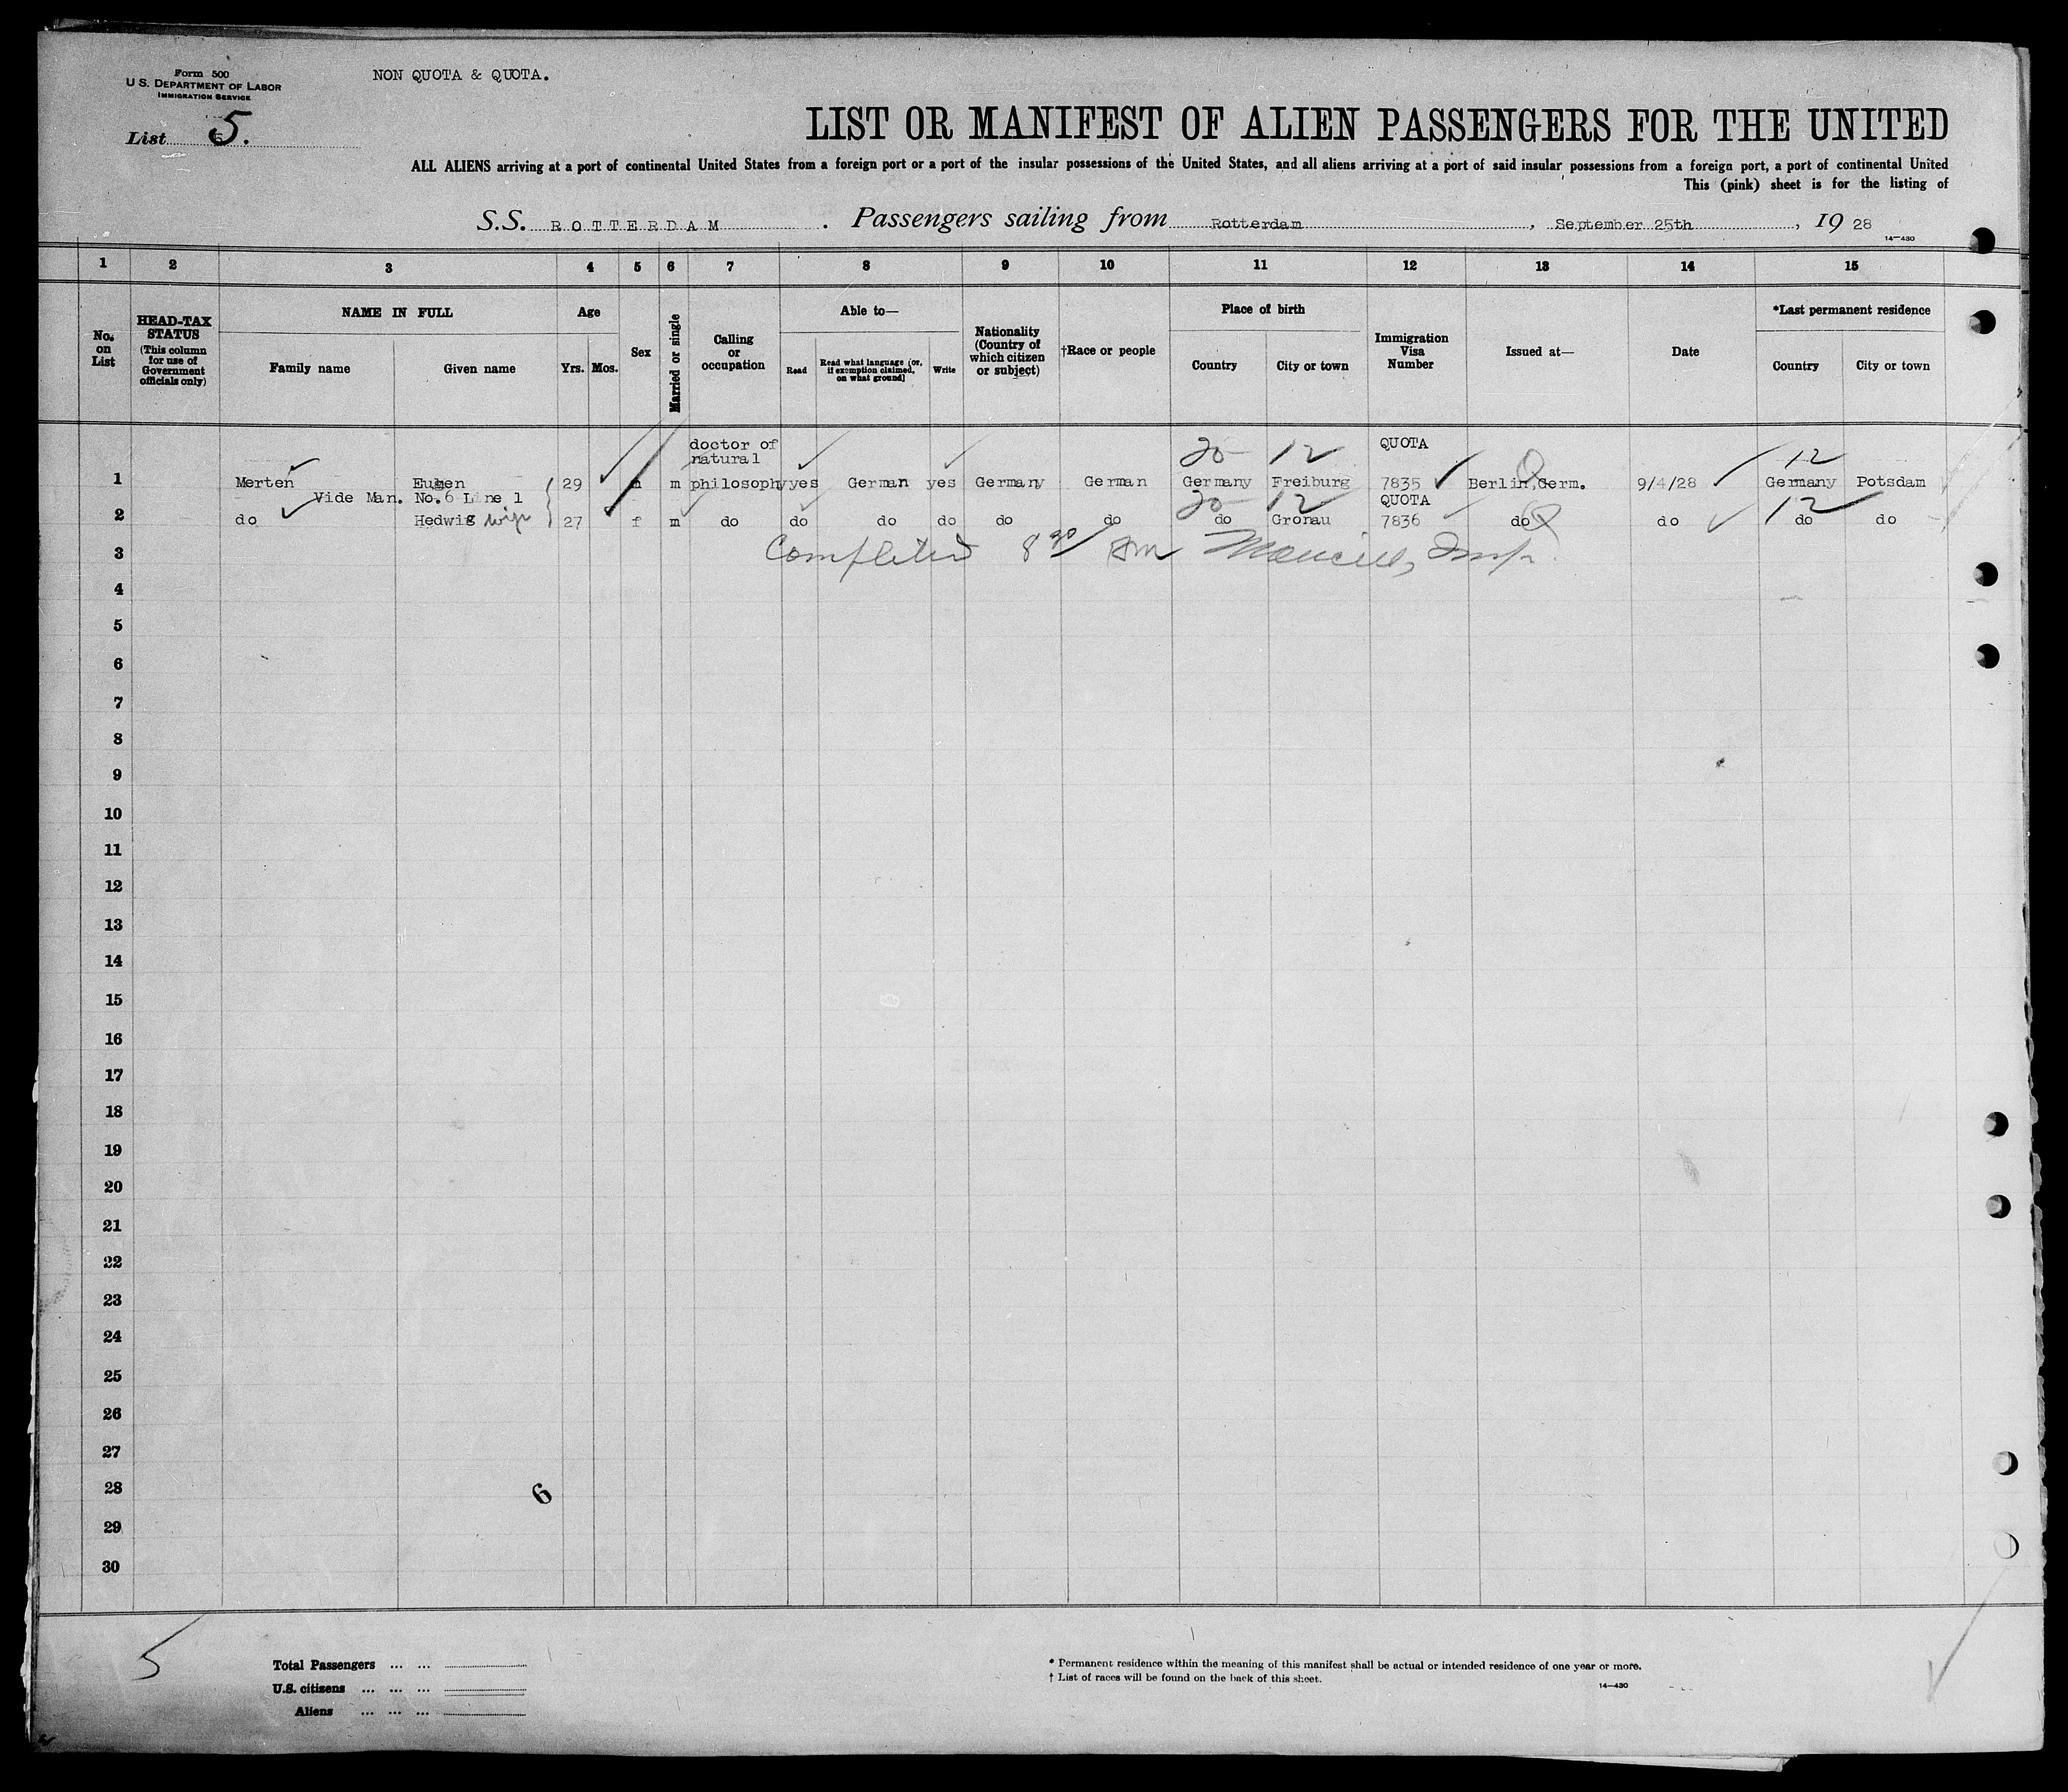 Form 500
U.S. DEPARTMENT OF LABOR
IMMIGRATION SERVICE
NON QUOTA & QUOTA.
List 5.
LIST OR MANIFEST OF ALIEN PASSENGERS FOR THE UNITED
ALL ALIENS arriving at a port of continental United States from a foreign port or a port of the insular possessions of the United States, and all aliens arriving at a port of said insular possessions from a foreign port, a port of continental United
This (pink) sheet is for the listing of
S.S. ROTTERDAM. Passengers sailing from Rotterdam, September 25th, 19 28
14—430
1 2 3 4 5 6 7 8 9 10 11 12 13 14 15
No. on List
HEAD-TAX STATUS (This column for use of Government officials only)
NAME IN FULL
Family name Given name
Age
Yrs. Mos.
Sex
Married or single
Calling or occupation
Able to—
Read Read what language [or, if exemption claimed, on what ground] Write
Nationality (Country of which citizen or subject)
†Race or people
Place of birth
Country City or town
Immigration Visa Number
Issued at—
Date
*Last permanent residence
Country City or town
doctor of 20 12 QUOTA
natural 12
1 Merten Eugen 29 m m philosophy yes German yes Germany German Germany Freiburg 7835 Berlin, Germ. 9/4/28 Germany Potsdam
Vide Man. No.6 Line 1 20 12 QUOTA 12
2 do Hedwig wife 27 f m do do do do do do do Gronau 7836 do do do do
3 Completed 8 30 am
4
5
6
7
8
9
10
11
12
13
14
15
16
17
18
19
20
21
22
23
24
25
26
27
28 6
29
30
5
Total Passengers ... ...
U.S. citizens ... ... ...
Aliens ... ... ...
* Permanent residence within the meaning of this manifest shall be actual or intended residence of one year or more.
† List of races will be found on the back of this sheet.
14—430